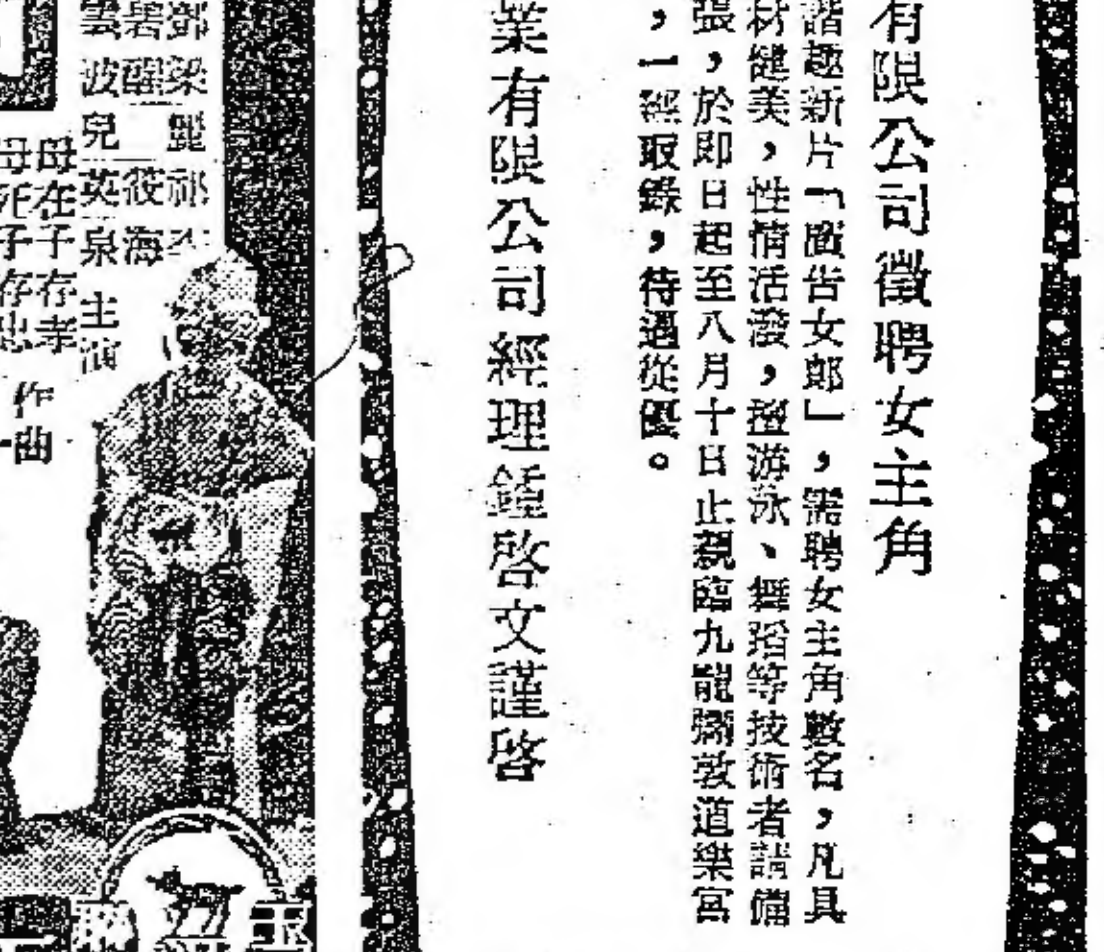 有限公司徵聘女主角
諧趣新片「廣告女郎」，需聘女主角數名，凡具
材健美，性情活潑，擅游泳、舞蹈等技術者請備
張，於即日起至八月十日止親臨九龍彌敦道樂宮
，一經取錄，待遇從優。
業有限公司經理鍾啓文謹啓
鄧 梁 麗 祁
碧 醒 筱 海
雲 波 兒 英 泉 主演
母在子存孝
母死子存忠
作曲